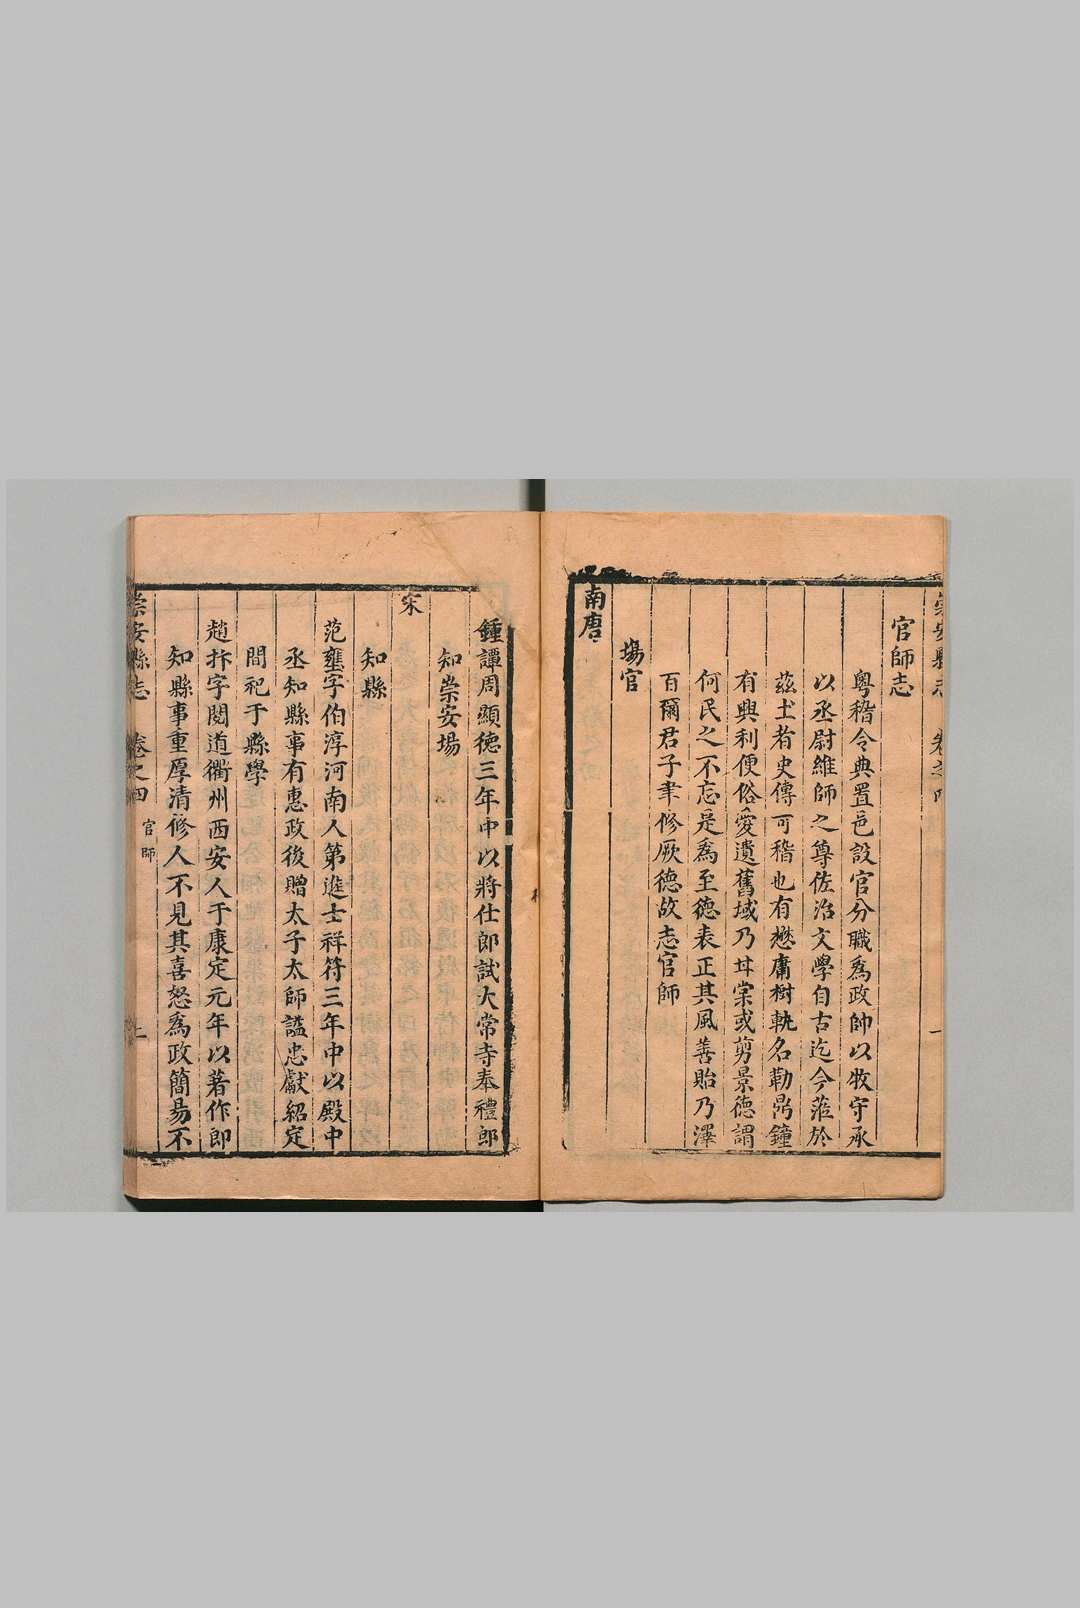 崇安縣志 卷之四 一
官師志
粵稽令典置邑設官分職為政帥以牧守承
以丞尉維師之尊佐治文學自古迄今蒞於
茲土者史傳可稽也有懋庸樹軌名勒鼎鐘
有興利便俗愛遺舊域乃甘棠或剪景德謂
何民之不忘是為至德表正其風善貽乃澤
百爾君子聿修厥德故志官師
場官
南唐
鍾譚周顯德三年中以將仕郎試大常寺奉禮郎
知崇安場
宋
知縣
范壅字伯淳河南人第進士祥符三年中以殿中
丞知縣事有惠政後贈太子太師謚忠獻紹定
間祀于縣學
趙抃字閱道衢州西安人于康定元年以著作郎
知縣事重厚清修人不見其喜怒為政簡易不
崇安縣志 卷之四 官師 二